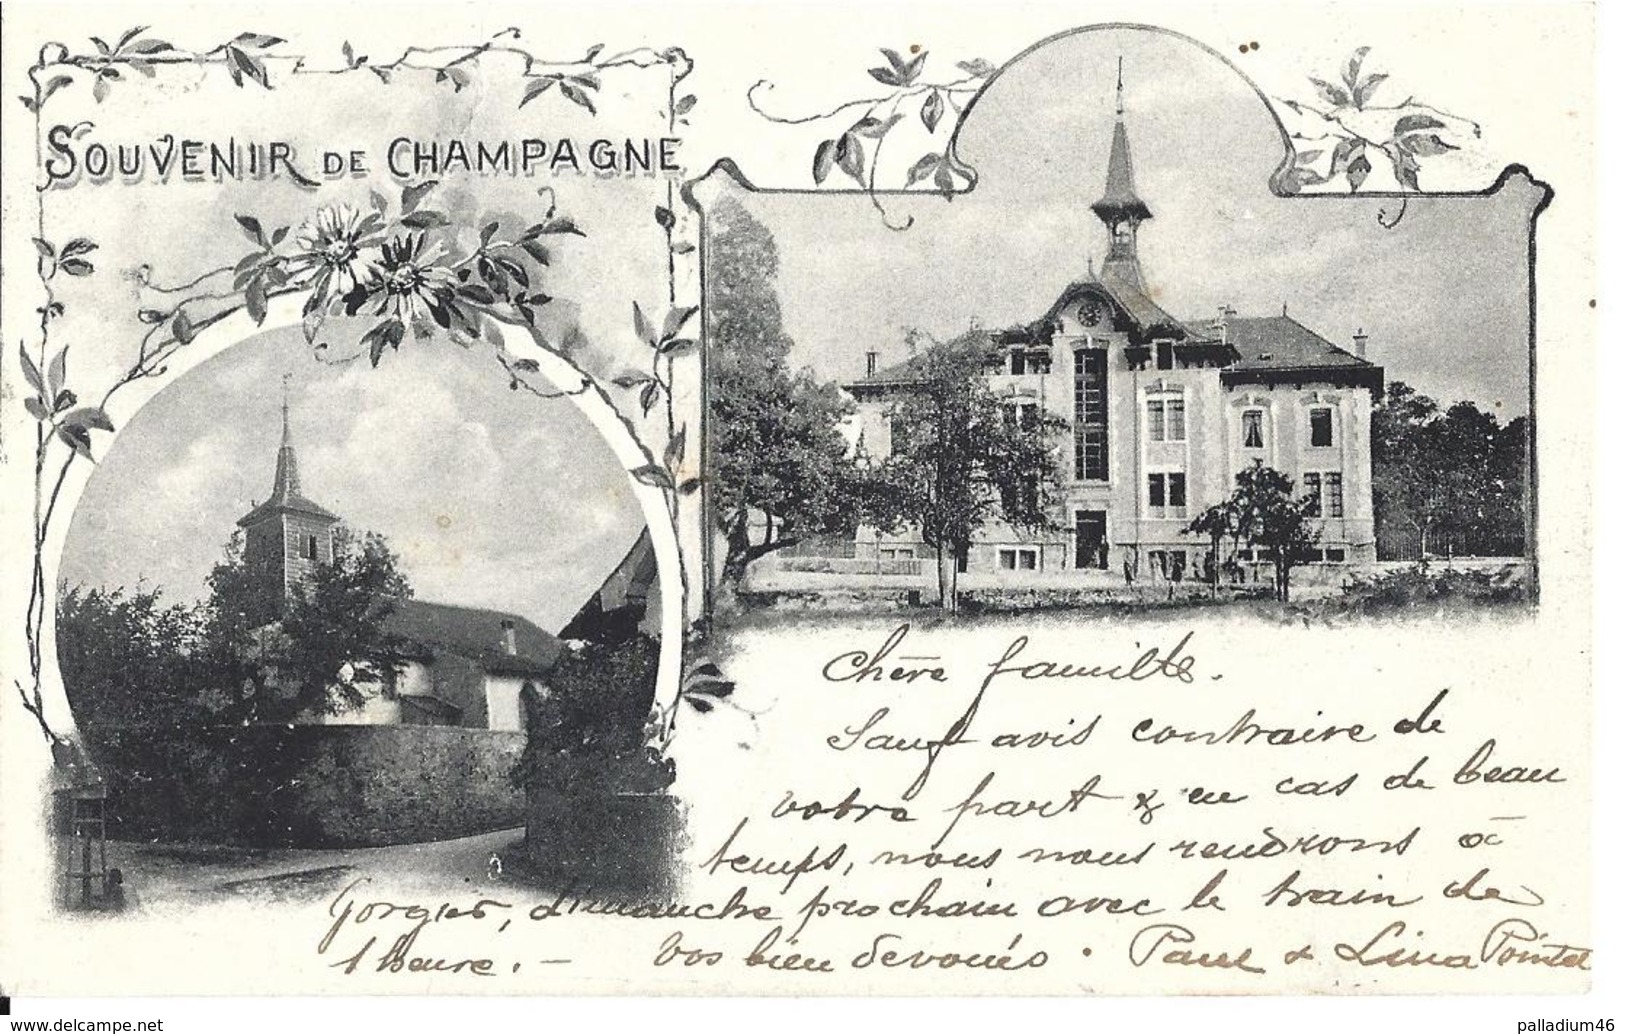 SOUVENIR DE CHAMPAGNE
Chère famille.
Sauf avis contraire de
votre part & en cas de beau
temps, nous nous rendrons à
Gorgier, dimanche prochain avec le train de
1 heure. — Vos bien dévoués. Paul & Lina Pointet
delcampe.net
palladium46